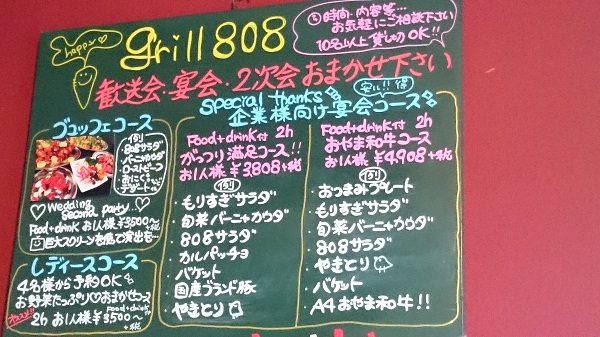 happy♡
grill 808
時間・内容等…
お気軽にご相談下さい
10名以上貸し切りOK!!
歓送会・宴会・2次会おまかせ下さい
Special thanks
安ル!!得
企業様向け宴会コース
ブュッフェコース
例)
808サラダ
バーニャカウダ
ローストビーフ
おにく
デザート
♡Wedding
Second party…♡
Food+drink お1人様¥3,500〜
+税
巨大スクリーンを使て演出を…
レディースコース
4名様から予約OK
お野菜たっぷり♡おまかせコース
オススメ!
Food+drink付
2h お1人様¥3,500〜
+税
Food+drink付 2h
がっつり満足コース!!
お1人様¥3,808+税
例)
・もりすぎサラダ
・旬菜バーニャカウダ
・808サラダ
・カルパッチョ
・バケット
・国産ブランド豚
・やきとり
Food+drink付 2h
おやま和牛コース
お1人様¥4,908+税
例)
・おつまみプレート
・もりすぎサラダ
・旬菜バーニャカウダ
・808サラダ
・やきとり
・バケット
・A4おやま和牛!!